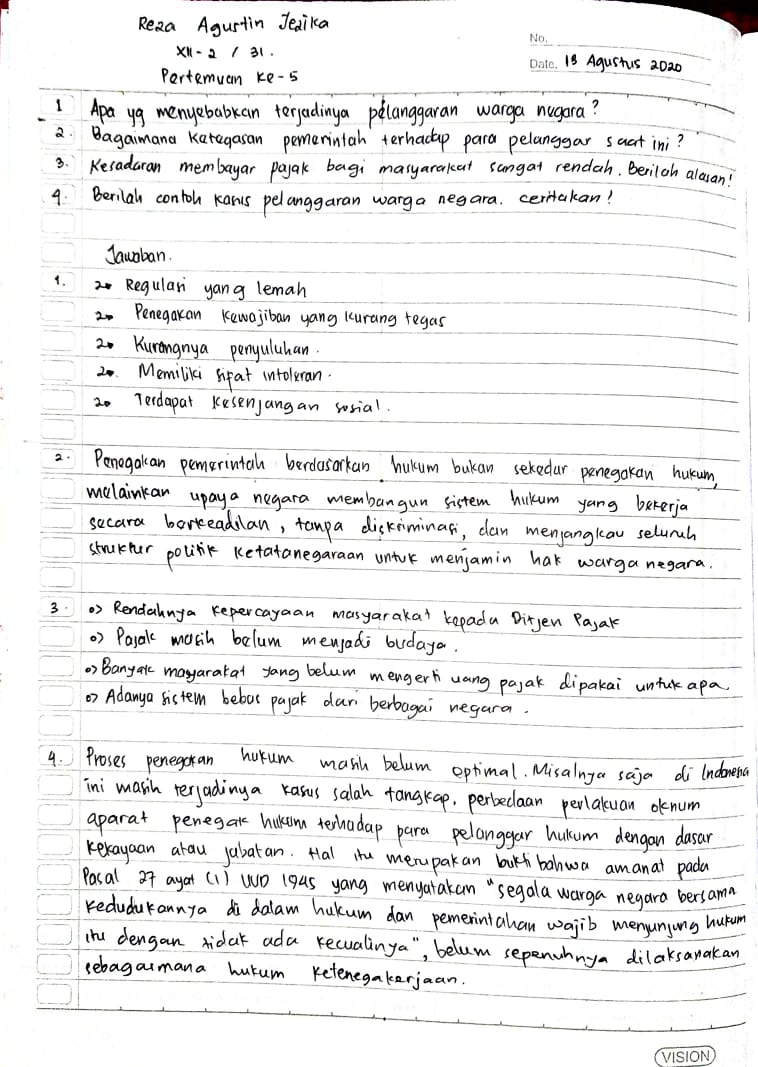 Reza Agustin Jezika
XII-2 / 31.
Pertemuan Ke-5
No.
Date. 18 Agustus 2020
1 Apa yg menyebabkan terjadinya pelanggaran warga negara?
2. Bagaimana Ketegasan pemerintah terhadap para pelanggar saat ini?
3. Kesadaran membayar pajak bagi masyarakat sangat rendah. Berilah alasan!
4. Berilah contoh kasus pelanggaran warga negara. ceritakan!
Jawaban.
1. Regulasi yang lemah
Penegakan Kewajiban yang kurang tegas
Kurangnya penyuluhan.
Memiliki sifat intoleran.
Terdapat Kesenjangan sosial.
2. Penegakan pemerintah berdasarkan hukum bukan sekedar penegakan hukum,
melainkan upaya negara membangun sistem hukum yang bekerja
secara berkeadilan, tanpa diskriminasi, dan menjangkau seluruh
struktur politik Ketatanegaraan untuk menjamin hak warga negara.
3. o> Rendahnya Kepercayaan masyarakat kepada Ditjen Pajak
o> Pajak masih belum menjadi budaya.
o> Banyak masyarakat yang belum mengerti uang pajak dipakai untuk apa
o> Adanya sistem bebas pajak dari berbagai negara.
4. Proses penegakan hukum masih belum optimal. Misalnya saja di Indonesia
ini masih terjadinya kasus salah tangkap, perbedaan perlakuan oknum
aparat penegak hukum terhadap para pelanggar hukum dengan dasar
Kekayaan atau jabatan. Hal itu merupakan bukti bahwa amanat pada
Pasal 27 ayat (1) UUD 1945 yang menyatakan "segala warga negara bersama
Kedudukannya di dalam hukum dan pemerintahan wajib menjunjung hukum
itu dengan tidak ada kecualinya", belum sepenuhnya dilaksanakan
sebagaimana hukum Ketenegakerjaan.
VISION